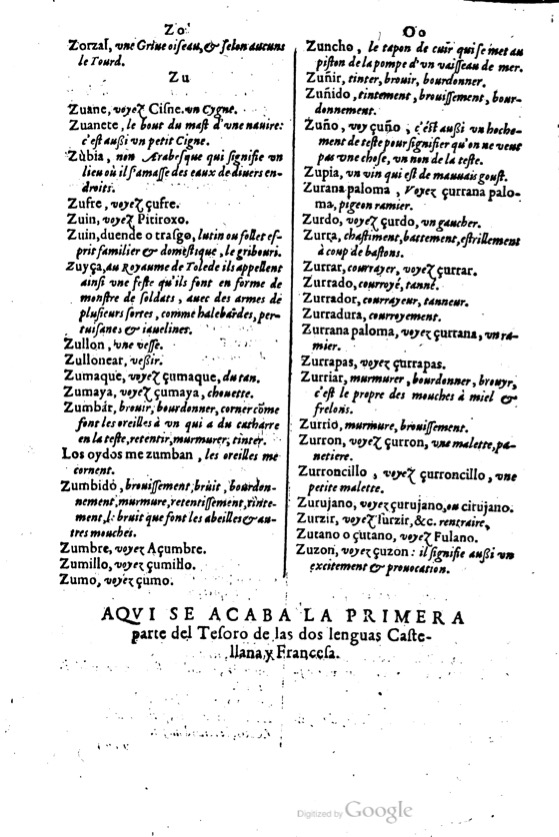 Zo
Zorzal, vne Griue oiseau, & selon aucuns
le Tourd.
Zu
Zuane, voyez Cisne. vn Cygne.
Zuanete, le bout du mast d'vne nauire:
c'est aussi vn petit Cigne.
Zùbia, non Arabesque qui signifie vn
lieu où il s'amasse des eaux de diuers en-
droits.
Zufre, voyez çufre.
Zuin, voyez Pitiroxo.
Zuin, duende o trasgo, lutin ou follet es-
prit familier & domestique, le gribouri.
Zuyça, au Royaume de Tolede ils appellent
ainsi vne feste qu'ils font en forme de
monstre de soldats, auec des armes de
plusieurs sortes, comme halebardes, per-
tuisanes & iauelines.
Zullon, vne vesse.
Zullonear, vessir.
Zumaque, voyez çumaque, du tan.
Zumaya, voyez çumaya, chouette.
Zumbàr, brouir, bourdonner, corner cōme
font les oreilles à vn qui a du catharre
en la teste, retentir, murmurer, tinter.
Los oydos me zumban, les oreilles me
cornent.
Zumbidò, brouissement, bruit, bourdon-
nement, murmure, retentissement, tinte-
ment, le bruit que font les abeilles & au-
tres mouches.
Zumbre, voyez Açumbre.
Zumillo, voyez çumillo.
Zumo, voyez çumo.
Oo
Zuncho, le tapon de cuir qui se met au
piston de la pompe d'vn vaisseau de mer.
Zuñir, tinter, brouir, bourdonner.
Zuñido, tintement, brouissement, bour-
donnement.
Zuño, voy çuño, c'est aussi vn hoche-
ment de teste pour signifier qu'on ne veut
pas vne chose, vn non de la teste.
Zupia, vn vin qui est de mauuais goust.
Zurana paloma, Voyez çurrana palo-
ma, pigeon ramier.
Zurdo, voyez çurdo, vn gaucher.
Zurra, chastiment, battement, estrillement
à coup de bastons.
Zurrar, courayer, voyez çurrar.
Zurrado, courroyé, tanné.
Zurrador, courrayeur, tanneur.
Zurradura, courroyement.
Zurrana paloma, voyez çurrana, vn ra-
mier.
Zurrapas, voyez çurrapas.
Zurriar, murmurer, bourdonner, brouyr,
c'est le propre des mouches à miel &
frelons.
Zurrio, murmure, brouissement.
Zurron, voyez çurron, vne malette, pa-
netiere.
Zurroncillo, voyez çurroncillo, vne
petite malette.
Zurujano, voyez çurujano, ou cirujano.
Zurzir, voyez surzir, &c. rentraire,
Zutano o çutano, voyez Fulano.
Zuzon, voyez çuzon: il signifie aussi vn
excitement & prouocation.
AQVI SE ACABA LA PRIMERA
parte del Tesoro de las dos lenguas Caste-
llana, y Francesa.
Digitized by Google